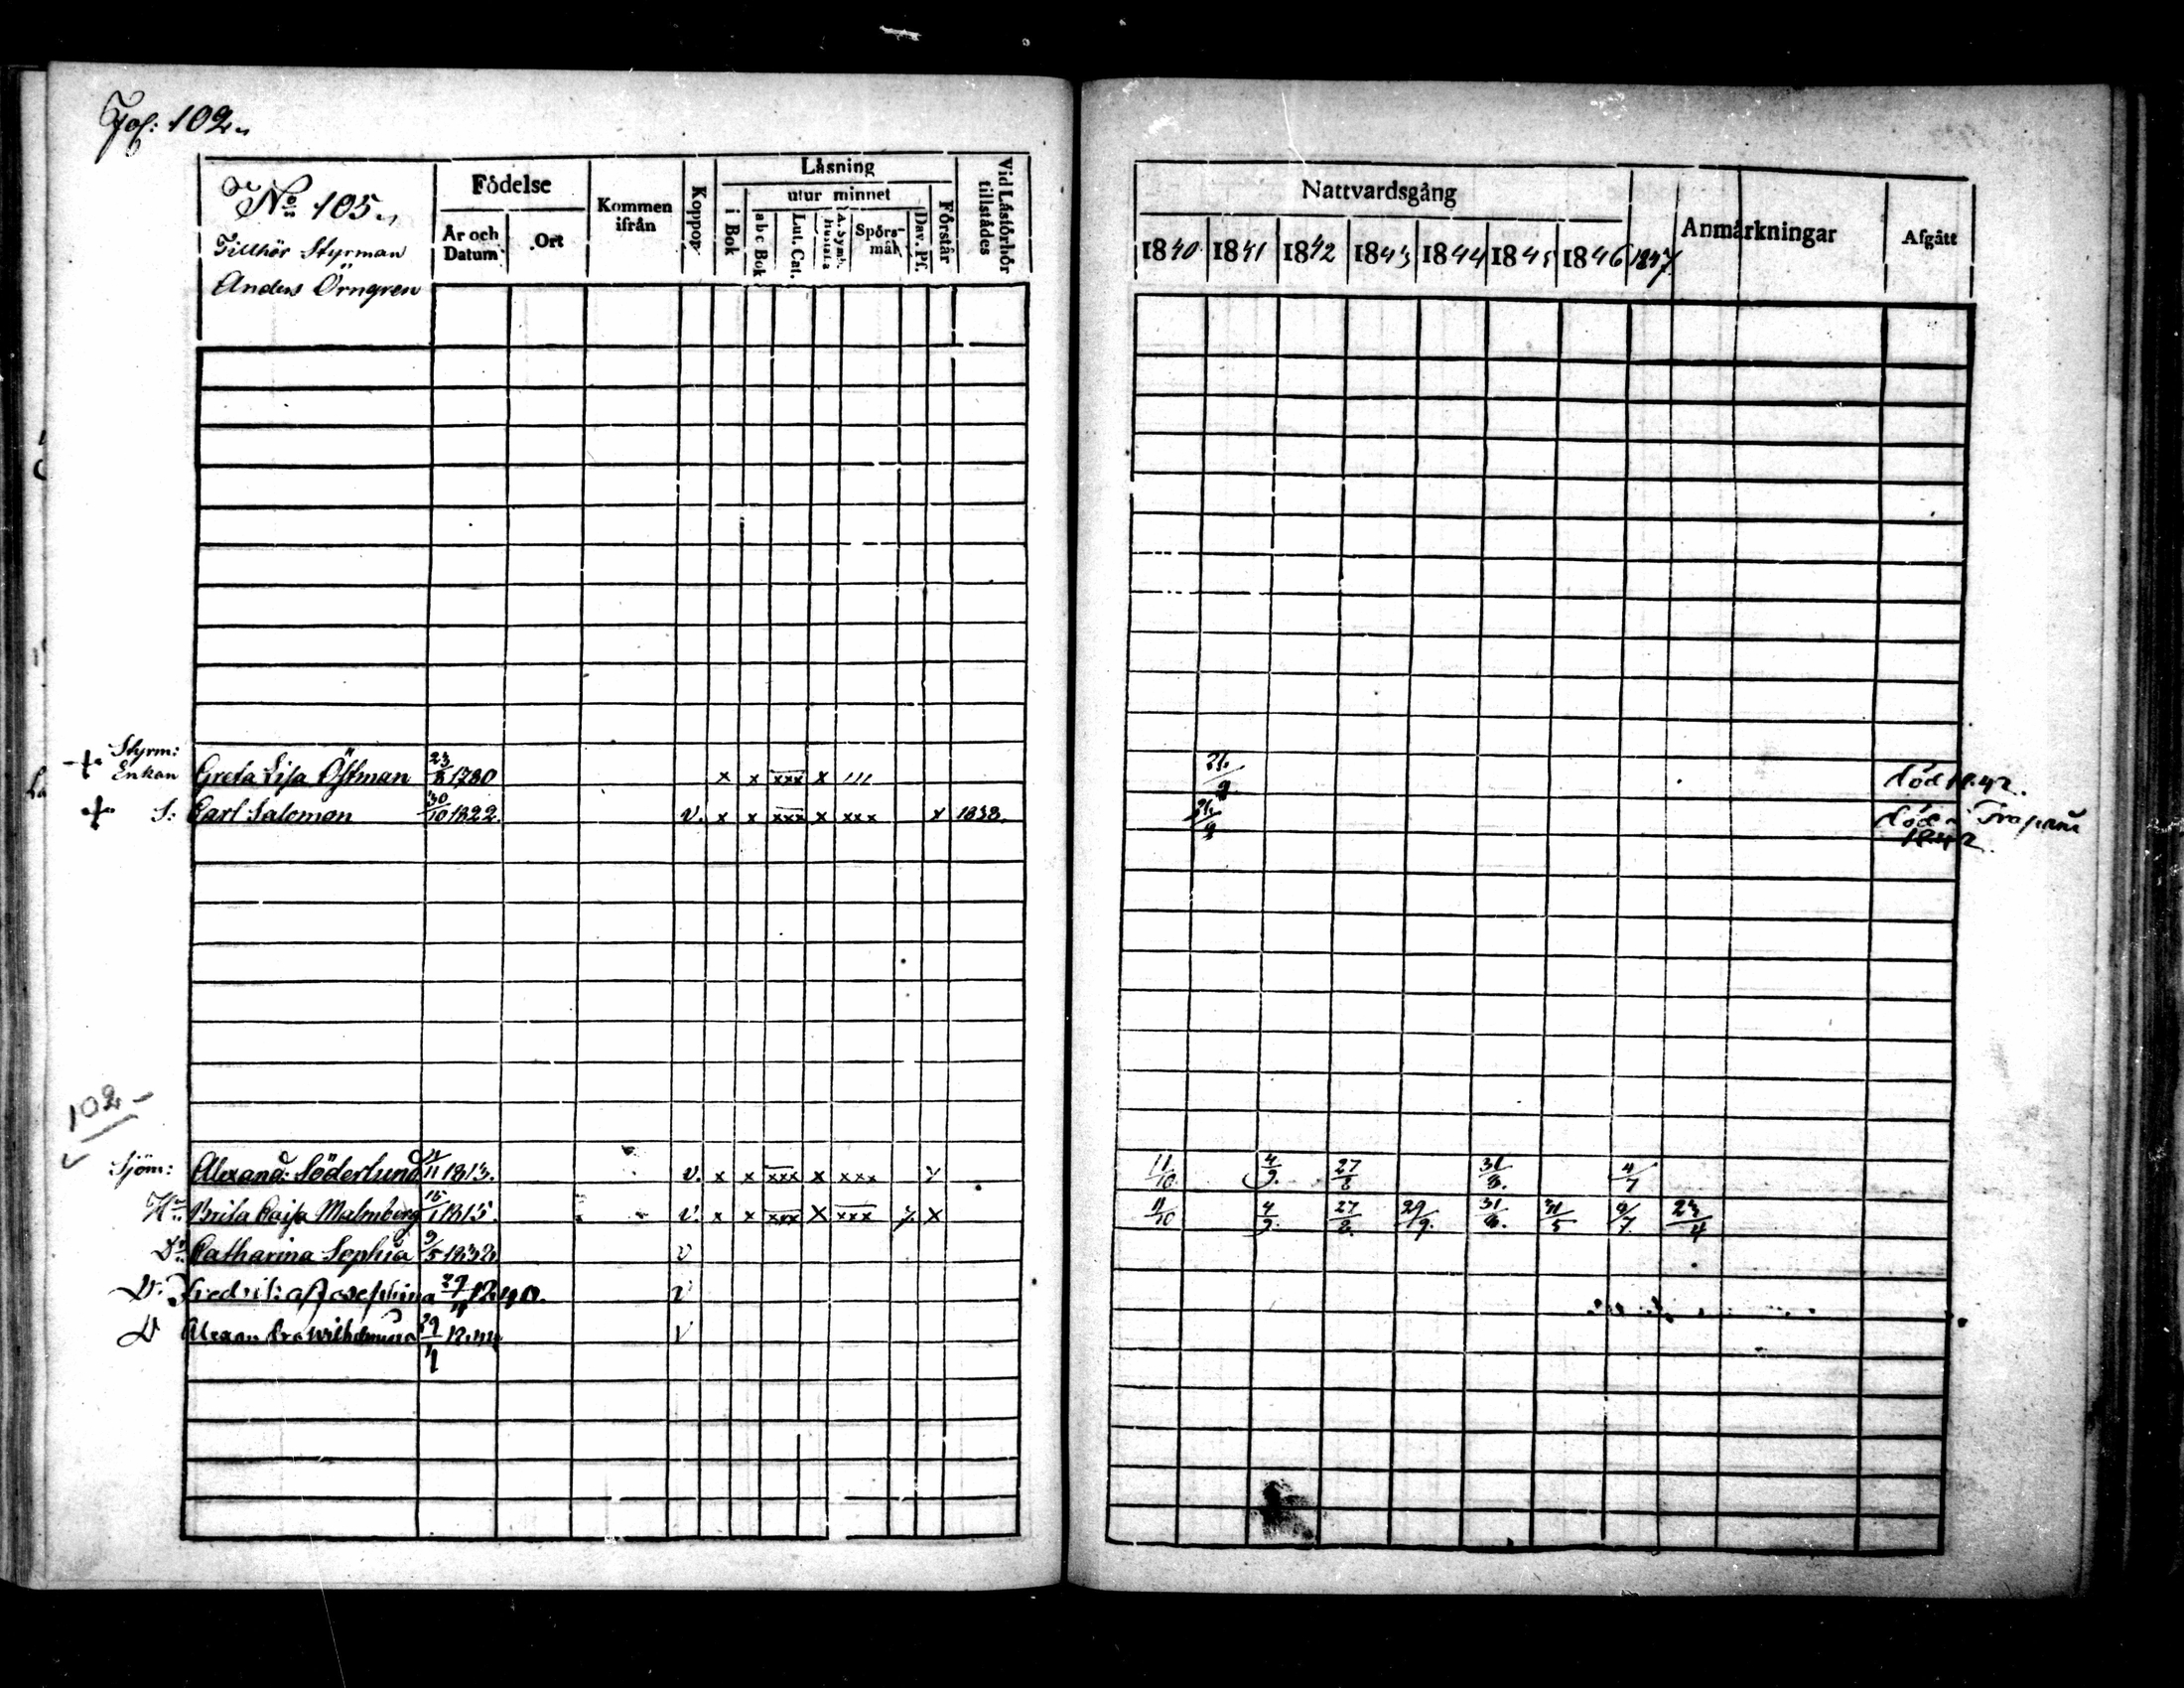 Fol: 102.
No 105.
Tillhör Styrman
Anders Örngren
Födelse
År och Datum
Ort
Kommen ifrån
Koppor
Läsning
i Bok
utur minnet
a b c Bok
Lut. Cat.
A. Symb.
Hustafla
Spörs-mål
Dav. Ps.
Förstår
Vid Läsförhör tillstädes
Nattvardsgång
1840 1841 1842 1843 1844 1845 1846 1847
Anmärkningar
Afgått
Styrm:
Enkan Greta Lisa Östman 23/8 1780 x x xxx x ,,, 21/9 död 1842.
S: Carl Salomon 30/10 1822. v. x x xxx x xxx x 1838. 21/9 död i Trapani
1842.
102
Sjöm: Alexand: Söderlund /11 1813. v. x x xxx x xxx x 11/10 4/9. 27/8 31/8. 4/7
Hu Brita Caisa Malmberg 15/1 1815. v. x x xxx x xxx x 11/10 4/9. 27/8. 29/9. 31/8. 31/5 4/7. 23/4
Dr Catharina Sophia 9/5 1838. v
D. Fredrika Josephina 27/11 1840. v
D Alexandra Wilhelmina 29/1 1844 v